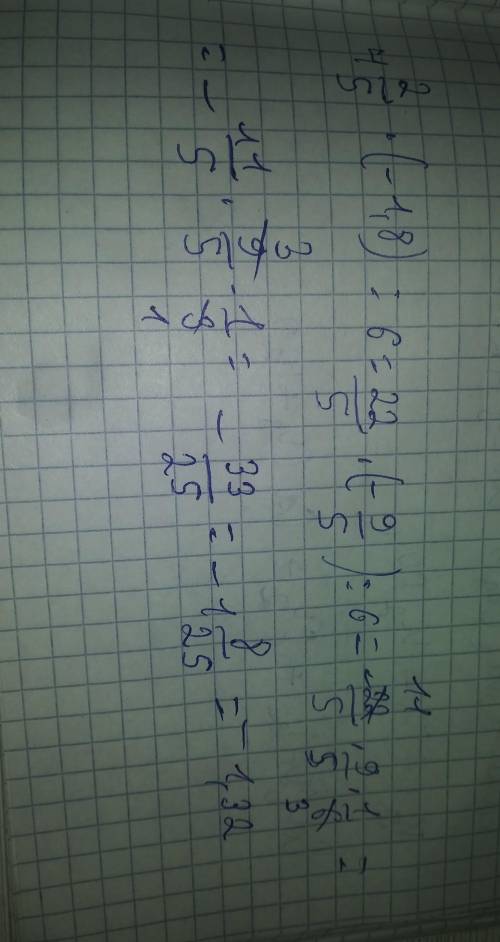 4 2/5 · (-1,8) : 6 = 22/5 · (-9/5) : 6 = -22/5 · 9/5 · 1/6 = 11 3
= - 11/5 · 9/5 · 1/3 = - 33/25 = - 1 8/25 = - 1,32 3 1